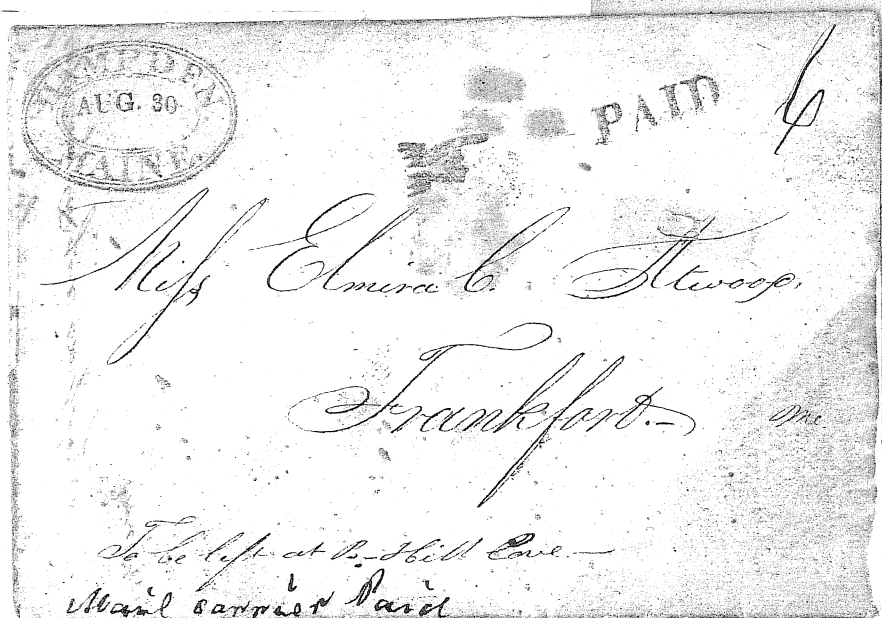 HAMPDEN
AUG. 30
MAINE.
PAID
6
Miss Elmira C. Atwood,
Frankfort.– Me
To be left at B.–Hill Cove.—
Mail carrier Paid